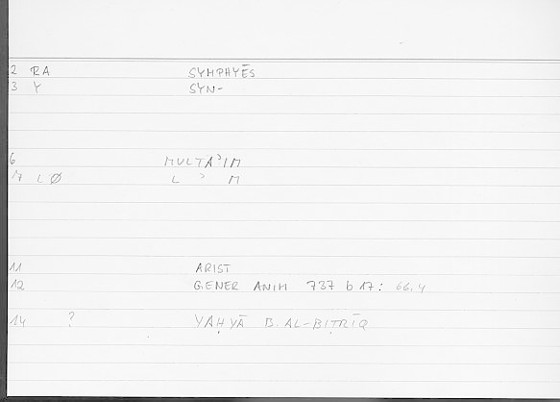 2 RA SYMPHYĒS
3 Y SYN-
6 MULTAʾIM
7 L Ø L ʾ M
11 ARIST
12 GENER ANIM 737 b 17: 66.4
14 ? YAḤYĀ B. AL-BIṬRĪQ